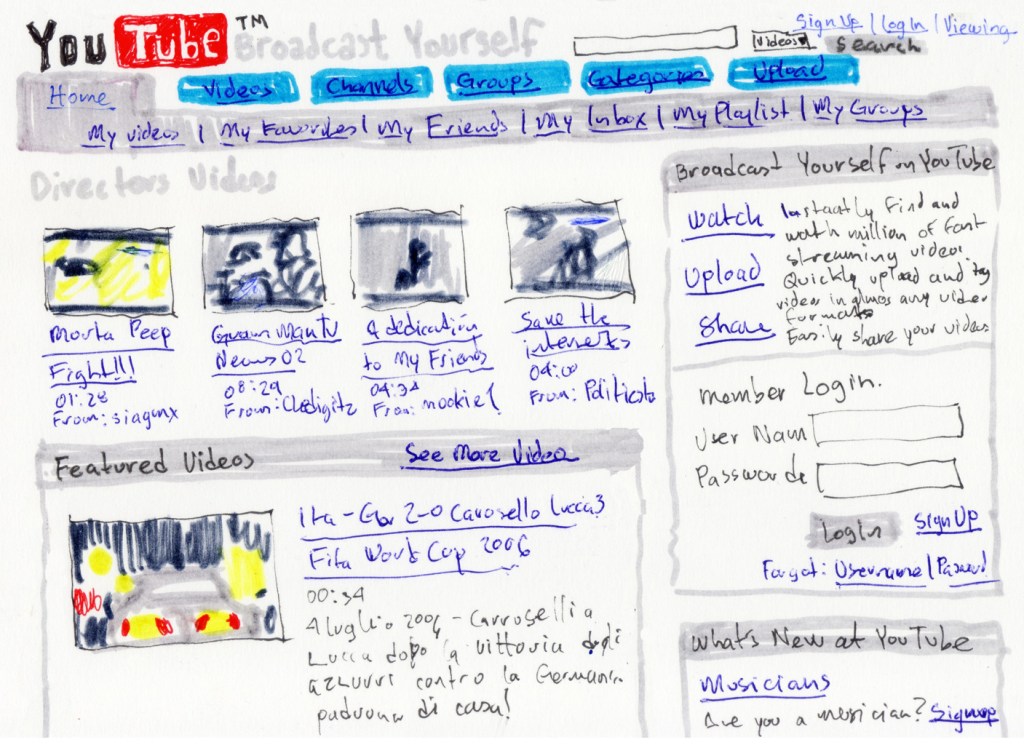 YouTube™ Broadcast Yourself
Sign Up | Log In | Viewing
Videos Search
Home Videos Channels Groups Categories Upload
My videos | My Favorites | My Friends | My Inbox | My Playlist | My Groups
Directors Videos
Morta Peep
Fight!!!
01:28
From: siagunx
News 02
08:29
From: Cledigitz
A dedication
to My Friends
04:34
From: mookie1
Save the
internets
04:00
From: Politicstv
Broadcast Yourself on YouTube
Watch Instactly Find and
million of fast
streaming video.
Upload Quickly upload and tag
video in almos any video
formats
Share Easily share your videos
Member Login.
User Nam
Password
Log In Sign Up
Forgot: Username | Passwd
Featured Videos See More Video
ita - Ger 2-0 Carosello Lucca3
Fifa World Cup 2006
00:34
4 luglio 2006 - Carroselli a
Lucca dopo la vittoria degli
azzurri contro la Germania
padrona di casa!
What's New at YouTube
Musicians
Are you a musician? Sign up